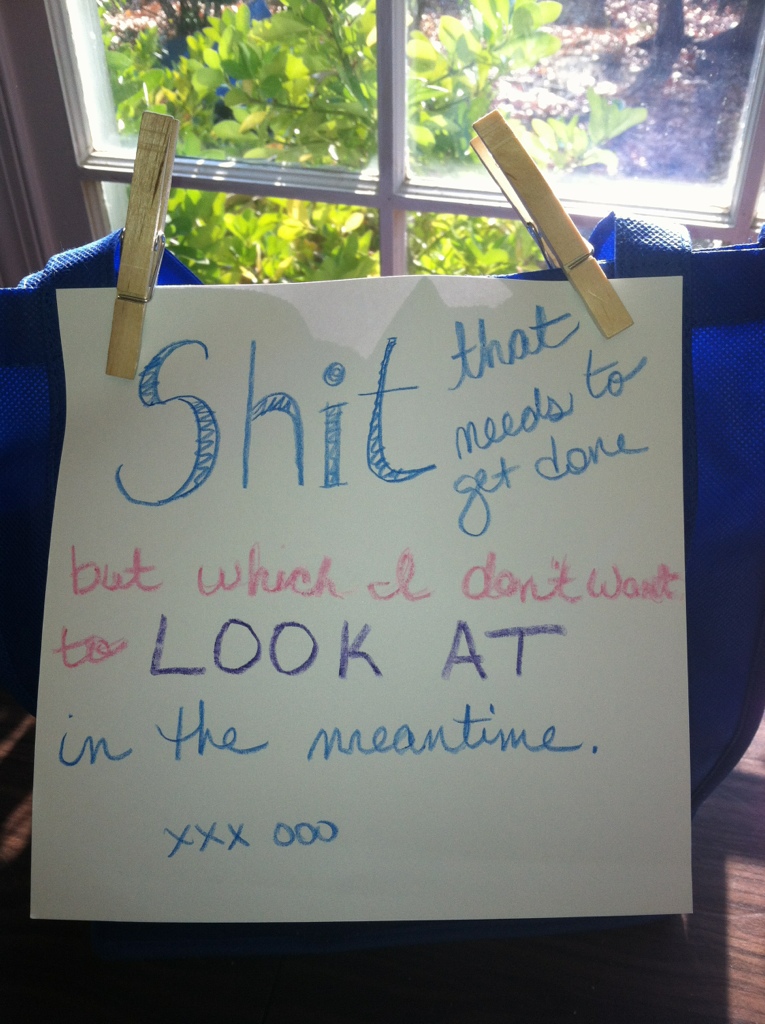 Shit that
needs to
get done
but which I don't want
to LOOK AT
in the meantime.
xxx ooo